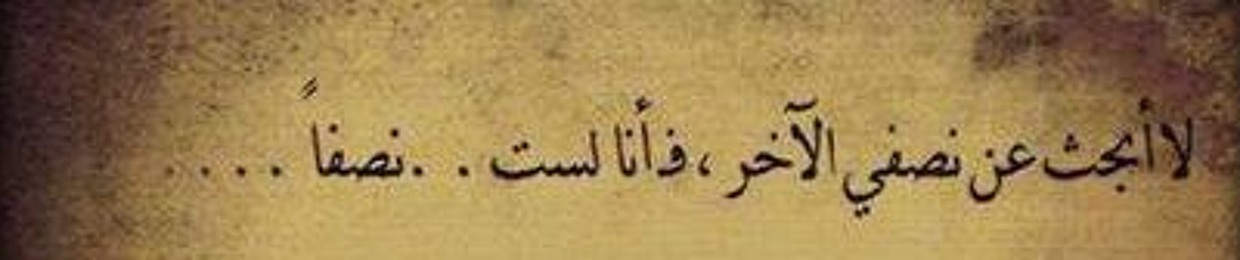 لا أبحث عن نصفي الآخر ، فأنا لست . . نصفاً . . . .